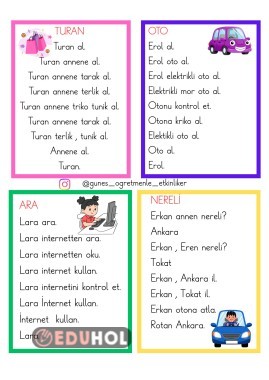 TURAN
Turan al.
Turan annene al.
Turan annene tarak al.
Turan annene terlik al.
Turan annene triko tunik al.
Turan annene tarak al.
Turan terlik , tunik al.
Annene al.
Turan.
OTO
Erol al.
Erol oto al.
Erol elektrikli oto al.
Elektrikli mor oto al.
Otonu kontrol et.
Otona kriko al.
Elektikli oto al.
Oto al.
Erol.
@gunes_ogretmenle_etkinliker
ARA
Lara ara.
Lara internetten ara.
Lara internetten oku.
Lara internet kullan.
Lara internetini kontrol et.
Lara İnternet kullan.
İnternet kullan.
Lara
EDUHOL
NERELİ
Erkan annen nereli?
Ankara
Erkan , Eren nereli?
Tokat
Erkan , Ankara il.
Erkan , Tokat il.
Erkan otona atla.
Rotan Ankara.